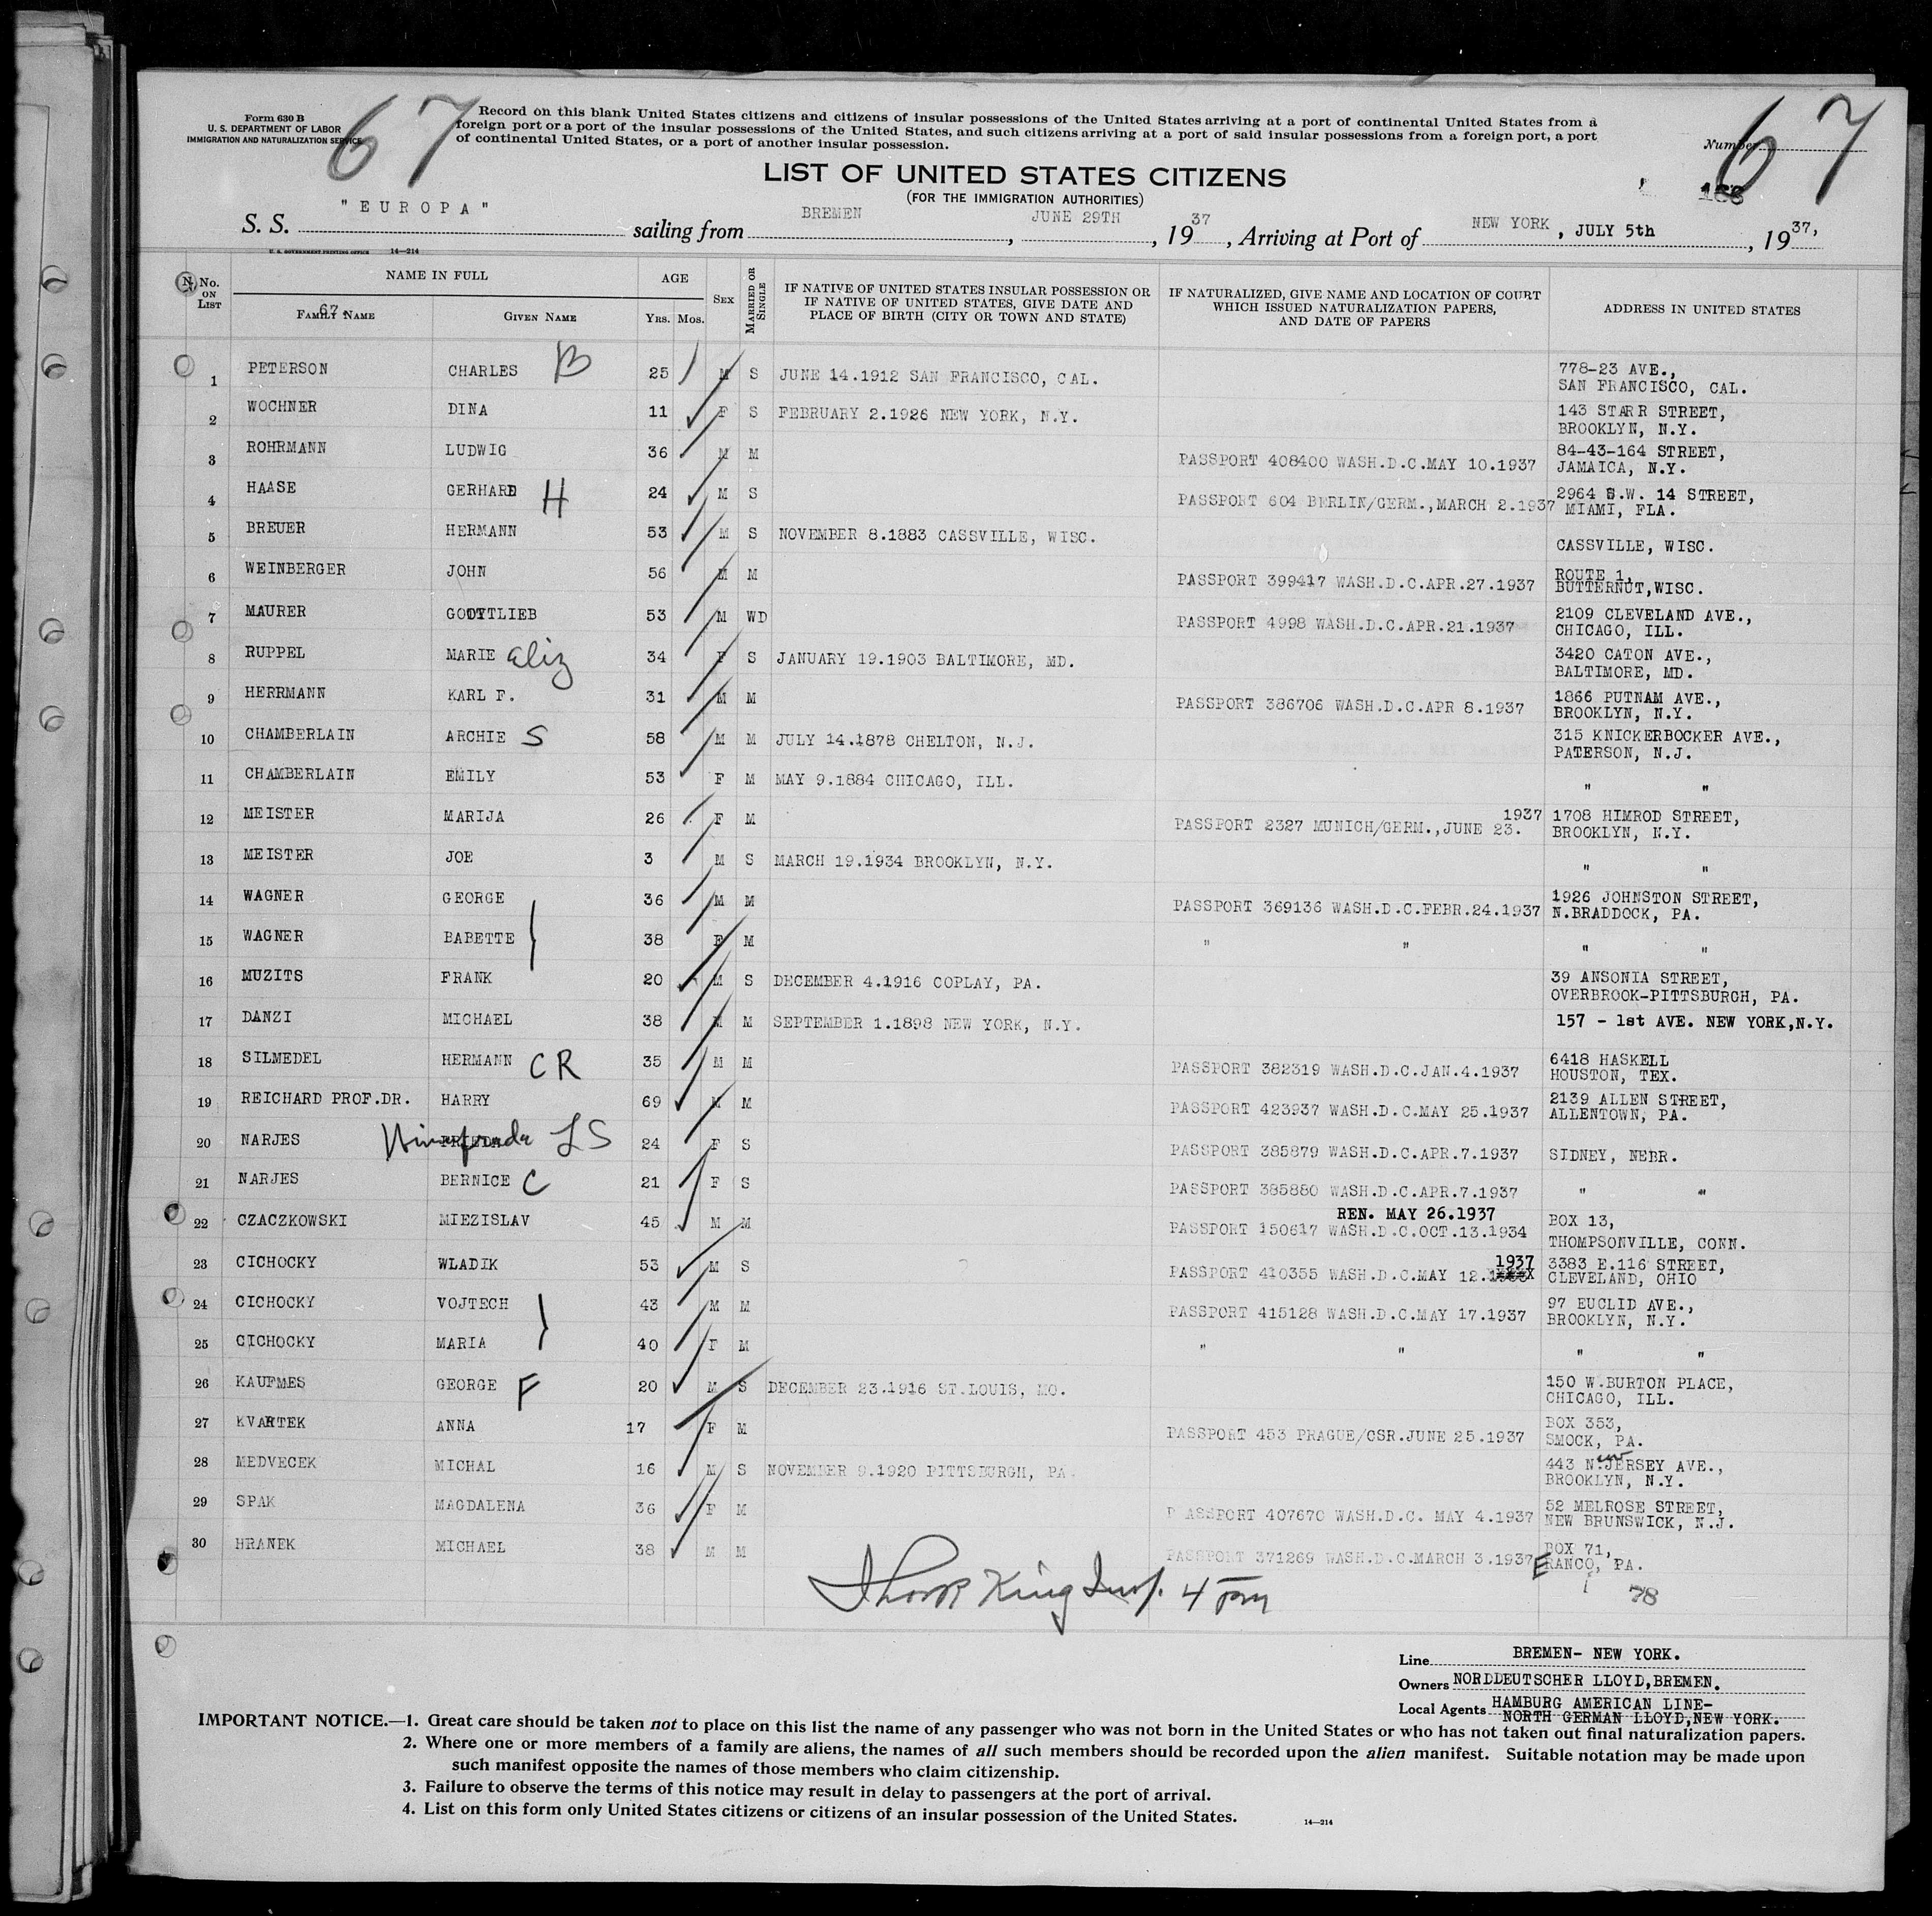 Form 630 B
U. S. DEPARTMENT OF LABOR
IMMIGRATION AND NATURALIZATION SERVICE
67
Record on this blank United States citizens and citizens of insular possessions of the United States arriving at a port of continental United States from a
foreign port or a port of the insular possessions of the United States, and such citizens arriving at a port of said insular possessions from a foreign port, a port
of continental United States, or a port of another insular possession.
Number 67
LIST OF UNITED STATES CITIZENS
(FOR THE IMMIGRATION AUTHORITIES)
S. S. "EUROPA" sailing from BREMEN, JUNE 29TH, 1937, Arriving at Port of NEW YORK, JULY 5th, 1937,
U. S. GOVERNMENT PRINTING OFFICE 14—214
No. ON LIST
NAME IN FULL
67.
FAMILY NAME GIVEN NAME
AGE
YRS. MOS.
SEX
MARRIED OR SINGLE
IF NATIVE OF UNITED STATES INSULAR POSSESSION OR
IF NATIVE OF UNITED STATES, GIVE DATE AND
PLACE OF BIRTH (CITY OR TOWN AND STATE)
IF NATURALIZED, GIVE NAME AND LOCATION OF COURT
WHICH ISSUED NATURALIZATION PAPERS,
AND DATE OF PAPERS
ADDRESS IN UNITED STATES
1 PETERSON CHARLES B 25 M S JUNE 14.1912 SAN FRANCISCO, CAL. 778-23 AVE.,
SAN FRANCISCO, CAL.
2 WOCHNER DINA 11 F S FEBRUARY 2.1926 NEW YORK, N.Y. 143 STARR STREET,
BROOKLYN, N.Y.
3 ROHRMANN LUDWIG 36 M M PASSPORT 408400 WASH.D.C.MAY 10.1937 84-43-164 STREET,
JAMAICA, N.Y.
4 HAASE GERHARD H 24 M S PASSPORT 604 BERLIN/GERM.,MARCH 2.1937 2964 S.W. 14 STREET,
MIAMI, FLA.
5 BREUER HERMANN 53 M S NOVEMBER 8.1883 CASSVILLE, WISC. CASSVILLE, WISC.
6 WEINBERGER JOHN 56 M M PASSPORT 399417 WASH.D.C.APR.27.1937 ROUTE 1,
BUTTERNUT,WISC.
7 MAURER GOTTLIEB 53 M WD PASSPORT 4998 WASH.D.C.APR.21.1937 2109 CLEVELAND AVE.,
CHICAGO, ILL.
8 RUPPEL MARIE Eliz 34 F S JANUARY 19.1903 BALTIMORE, MD. 3420 CATON AVE.,
BALTIMORE, MD.
9 HERRMANN KARL F. 31 M M PASSPORT 386706 WASH.D.C.APR 8.1937 1866 PUTNAM AVE.,
BROOKLYN, N.Y.
10 CHAMBERLAIN ARCHIE S 58 M M JULY 14.1878 CHELTON, N.J. 315 KNICKERBOCKER AVE.,
PATERSON, N.J.
11 CHAMBERLAIN EMILY 53 F M MAY 9.1884 CHICAGO, ILL. " "
12 MEISTER MARIJA 26 F M PASSPORT 2327 MUNICH/GERM.,JUNE 23. 1937 1708 HIMROD STREET,
BROOKLYN, N.Y.
13 MEISTER JOE 3 M S MARCH 19.1934 BROOKLYN, N.Y. " "
14 WAGNER GEORGE 36 M M PASSPORT 369136 WASH.D.C.FEBR.24.1937 1926 JOHNSTON STREET,
N.BRADDOCK, PA.
15 WAGNER BABETTE 38 F M " " " "
16 MUZITS FRANK 20 M S DECEMBER 4.1916 COPLAY, PA. 39 ANSONIA STREET,
OVERBROOK-PITTSBURGH, PA.
17 DANZI MICHAEL 38 M M SEPTEMBER 1.1898 NEW YORK, N.Y. 157 - 1st AVE. NEW YORK,N.Y.
18 SILMEDEL HERMANN CR 35 M M PASSPORT 382319 WASH.D.C.JAN.4.1937 6418 HASKELL
HOUSTON, TEX.
19 REICHARD PROF.DR. HARRY 69 M M PASSPORT 423937 WASH.D.C.MAY 25.1937 2139 ALLEN STREET,
ALLENTOWN, PA.
20 NARJES LS 24 F S PASSPORT 385879 WASH.D.C.APR.7.1937 SIDNEY, NEBR.
21 NARJES BERNICE C 21 F S PASSPORT 385880 WASH.D.C.APR.7.1937 " "
REN. MAY 26.1937
22 CZACZKOWSKI MIEZISLAV 45 M M PASSPORT 150617 WASH.D.C.OCT.13.1934 BOX 13,
THOMPSONVILLE, CONN.
23 CICHOCKY WLADIK 53 M S PASSPORT 410355 WASH.D.C.MAY 12. 1937 3383 E.116 STREET,
CLEVELAND, OHIO
24 CICHOCKY VOJTECH 43 M M PASSPORT 415128 WASH.D.C.MAY 17.1937 97 EUCLID AVE.,
BROOKLYN, N.Y.
25 CICHOCKY MARIA 40 F M " " " "
26 KAUFMES GEORGE F 20 M S DECEMBER 23.1916 ST.LOUIS, MO. 150 W.BURTON PLACE,
CHICAGO, ILL.
27 KVARTEK ANNA 17 F M PASSPORT 453 PRAGUE/CSR.JUNE 25.1937 BOX 353,
SMOCK, PA.
28 MEDVECEK MICHAL 16 M S NOVEMBER 9.1920 PITTSBURGH, PA. 443 N.JERSEY AVE.,
BROOKLYN, N.Y.
29 SPAK MAGDALENA 36 F M PASSPORT 407670 WASH.D.C. MAY 4.1937 52 MELROSE STREET,
NEW BRUNSWICK, N.J.
30 HRANEK MICHAEL 38 M M PASSPORT 371269 WASH.D.C.MARCH 3.1937 BOX 71,
ERANCO, PA.
King Insp. 4 pm
78
Line BREMEN- NEW YORK.
Owners NORDDEUTSCHER LLOYD,BREMEN.
Local Agents HAMBURG AMERICAN LINE-
NORTH GERMAN LLOYD,NEW YORK.
IMPORTANT NOTICE.—1. Great care should be taken not to place on this list the name of any passenger who was not born in the United States or who has not taken out final naturalization papers.
2. Where one or more members of a family are aliens, the names of all such members should be recorded upon the alien manifest. Suitable notation may be made upon
such manifest opposite the names of those members who claim citizenship.
3. Failure to observe the terms of this notice may result in delay to passengers at the port of arrival.
4. List on this form only United States citizens or citizens of an insular possession of the United States.
14—214